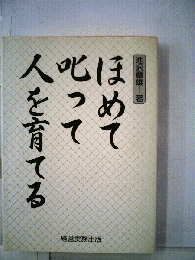 ほめて
叱って
人を育てる
著
経営実務出版